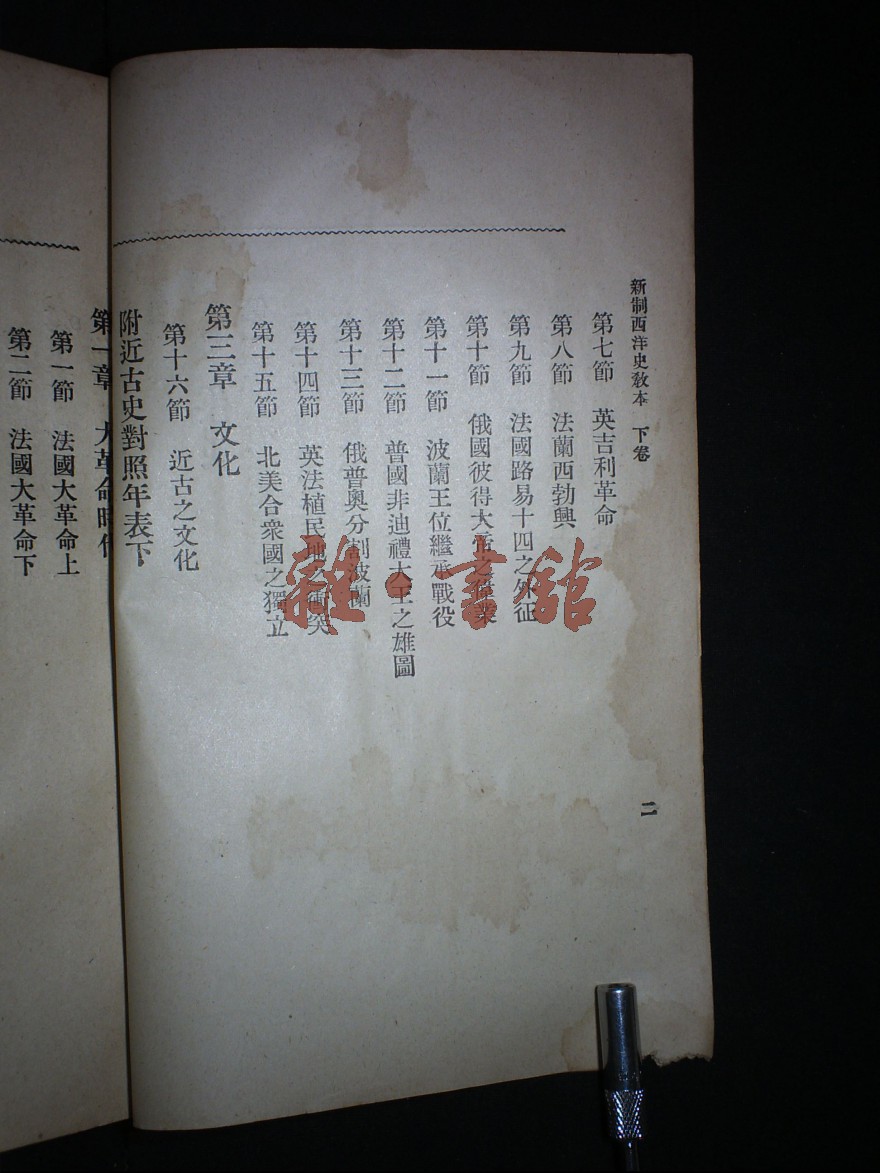 新制西洋史教本 下卷
二
第七節 英吉利革命
第八節 法蘭西勃興
第九節 法國路易十四之外征
第十節 俄國彼得大帝之偉業
第十一節 波蘭王位繼承戰役
第十二節 普國非迪禮大王之雄圖
第十三節 俄普奧分割波蘭
第十四節 英法植民地之衝突
第十五節 北美合衆國之獨立
第三章 文化
第十六節 近古之文化
附近古史對照年表下
第一章 大革命時代
第一節 法國大革命上
第二節 法國大革命下
雜·書館